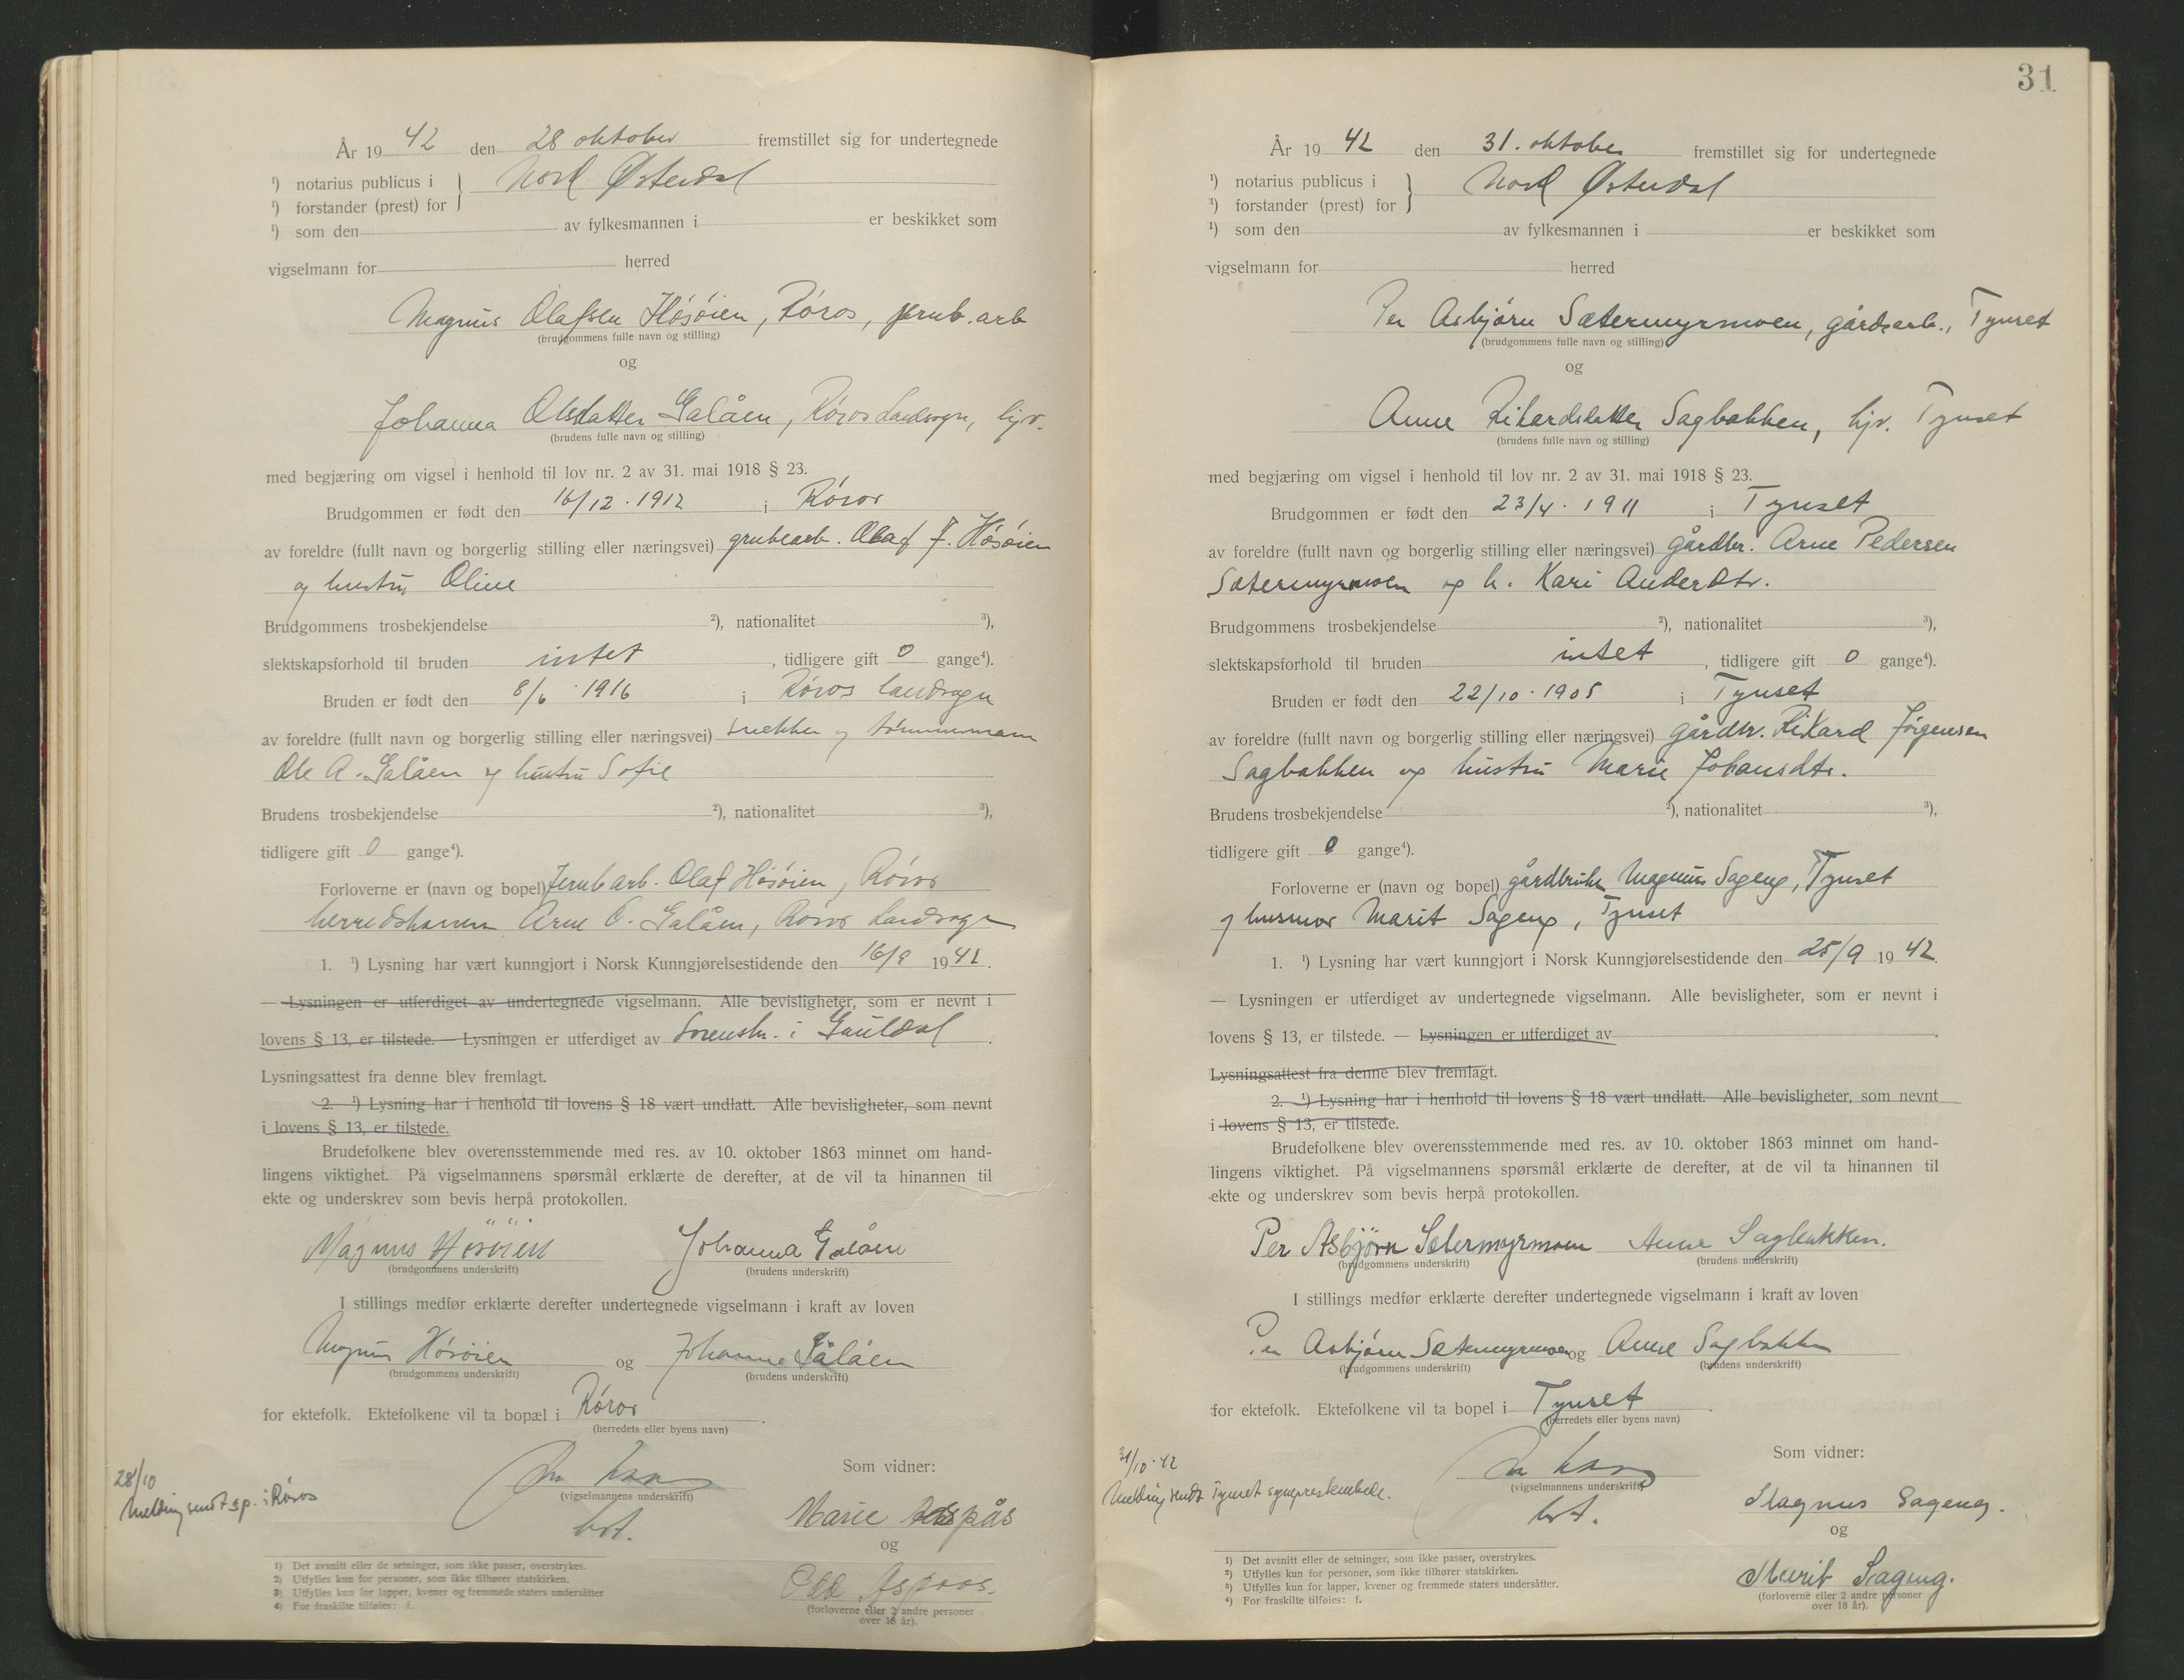 År 19 42 den 28 oktober fremstillet sig for undertegnede
¹) notarius publicus i } Nord Østerdal
¹) forstander (prest) for
¹) som den av fylkesmannen i er beskikket som
vigselmann for herred
Magnus Olafsen Høsøien, Røros, jernb.arb
(brudgommens fulle navn og stilling)
og
Johanna Olsdatter Galåen, Røros Landsogn, hjv.
(brudens fulle navn og stilling)
med begjæring om vigsel i henhold til lov nr. 2 av 31. mai 1918 § 23.
Brudgommen er født den 16/12. 1912 i Røros
av foreldre (fullt navn og borgerlig stilling eller næringsvei) grubearb. Olaf F. Høsøien
og hustru Oline
Brudgommens trosbekjendelse ²), nationalitet ³),
slektskapsforhold til bruden intet , tidligere gift 0 gange⁴).
Bruden er født den 8/6 1916 i Røros landsogn
av foreldre (fullt navn og borgerlig stilling eller næringsvei) snekker og tømmermann
Ole A. Galåen og hustru Sofie
Brudens trosbekjendelse ²), nationalitet ³),
tidligere gift 0 gange⁴).
Forloverne er (navn og bopel) Jernb arb. Olaf Høsøien, Røros
herredskasserer Arne O. Galåen, Røros Landsogn
1. ¹) Lysning har vært kunngjort i Norsk Kunngjørelsestidende den 16/9 1942.
— Lysningen er utferdiget av undertegnede vigselmann. Alle bevisligheter, som er nevnt i
lovens § 13, er tilstede. — Lysningen er utferdiget av Sorenskr. i Gauldal .
Lysningsattest fra denne blev fremlagt.
2. ¹) Lysning har i henhold til lovens § 18 vært undlatt. Alle bevisligheter, som nevnt
i lovens § 13, er tilstede.
Brudefolkene blev overensstemmende med res. av 10. oktober 1863 minnet om hand-
lingens viktighet. På vigselmannens spørsmål erklærte de derefter, at de vil ta hinannen til
ekte og underskrev som bevis herpå protokollen.
Magnus Hösöien Johanna Galåen
(brudgommens underskrift) (brudens underskrift)
I stillings medfør erklærte derefter undertegnede vigselmann i kraft av loven
Magnus Høsøien og Johanna Galåen
(brudgommens underskrift) (brudens underskrift)
for ektefolk. Ektefolkene vil ta bopæl i Røros .
(herredets eller byens navn)
28/10
Melding sendt sp. i Røros
(vigselmannens underskrift)
bst.
Som vidner:
Marie Aspås
og
Odd Aspaas.
(forloverne eller 2 andre personer
over 18 år).
1) Det avsnitt eller de setninger, som ikke passer, overstrykes.
2) Utfylles kun for personer, som ikke tilhører statskirken.
3) Utfylles kun for lapper, kvener og fremmede staters undersåtter
4) For fraskilte tilføies: f.
31
År 19 42 den 31. oktober fremstillet sig for undertegnede
¹) notarius publicus i } Nord Østerdal
¹) forstander (prest) for
¹) som den av fylkesmannen i er beskikket som
vigselmann for herred
Per Asbjørn Sætermyrmoen, gårdsarb., Tynset
(brudgommens fulle navn og stilling)
og
Anne Rikardsdatter Sagbakken, hjv. Tynset
(brudens fulle navn og stilling)
med begjæring om vigsel i henhold til lov nr. 2 av 31. mai 1918 § 23.
Brudgommen er født den 23/4. 1911 i Tynset
av foreldre (fullt navn og borgerlig stilling eller næringsvei) gårdbr. Arne Pedersen
Sætermyrmoen og h. Kari Andersdtr.
Brudgommens trosbekjendelse ²), nationalitet ³),
slektskapsforhold til bruden intet , tidligere gift 0 gange⁴).
Bruden er født den 22/10. 1905 i Tynset
av foreldre (fullt navn og borgerlig stilling eller næringsvei) gårdbr. Rikard Jørgensen
Sagbakken og hustru Marie Johansdtr.
Brudens trosbekjendelse ²), nationalitet ³),
tidligere gift 0 gange⁴).
Forloverne er (navn og bopel) gårdbruker Magnus Sageng, Tynset
og husmor Marit Sageng, Tynset
1. ¹) Lysning har vært kunngjort i Norsk Kunngjørelsestidende den 25/9 1942.
— Lysningen er utferdiget av undertegnede vigselmann. Alle bevisligheter, som er nevnt i
lovens § 13, er tilstede. — Lysningen er utferdiget av .
Lysningsattest fra denne blev fremlagt.
2. ¹) Lysning har i henhold til lovens § 18 vært undlatt. Alle bevisligheter, som nevnt
i lovens § 13, er tilstede.
Brudefolkene blev overensstemmende med res. av 10. oktober 1863 minnet om hand-
lingens viktighet. På vigselmannens spørsmål erklærte de derefter, at de vil ta hinannen til
ekte og underskrev som bevis herpå protokollen.
Per Asbjørn Sætermyrmoen Anne Sagbakken.
(brudgommens underskrift) (brudens underskrift)
I stillings medfør erklærte derefter undertegnede vigselmann i kraft av loven
Per Asbjørn Sætermyrmoen og Anne Sagbakken
(brudgommens underskrift) (brudens underskrift)
for ektefolk. Ektefolkene vil ta bopel i Tynset .
(herredets eller byens navn)
31/10-42
Melding sendt Tynset sogneprestembede.
(vigselmannens underskrift)
bst.
Som vidner:
Magnus Sageng.
og
Marit Sageng.
(forloverne eller 2 andre personer
over 18 år).
¹) Det avsnitt eller de setninger, som ikke passer, overstrykes.
²) Utfylles kun for personer, som ikke tilhører statskirken.
³) Utfylles kun for lapper, kvener og fremmede staters undersåtter.
⁴) For fraskilte tilføies: f.